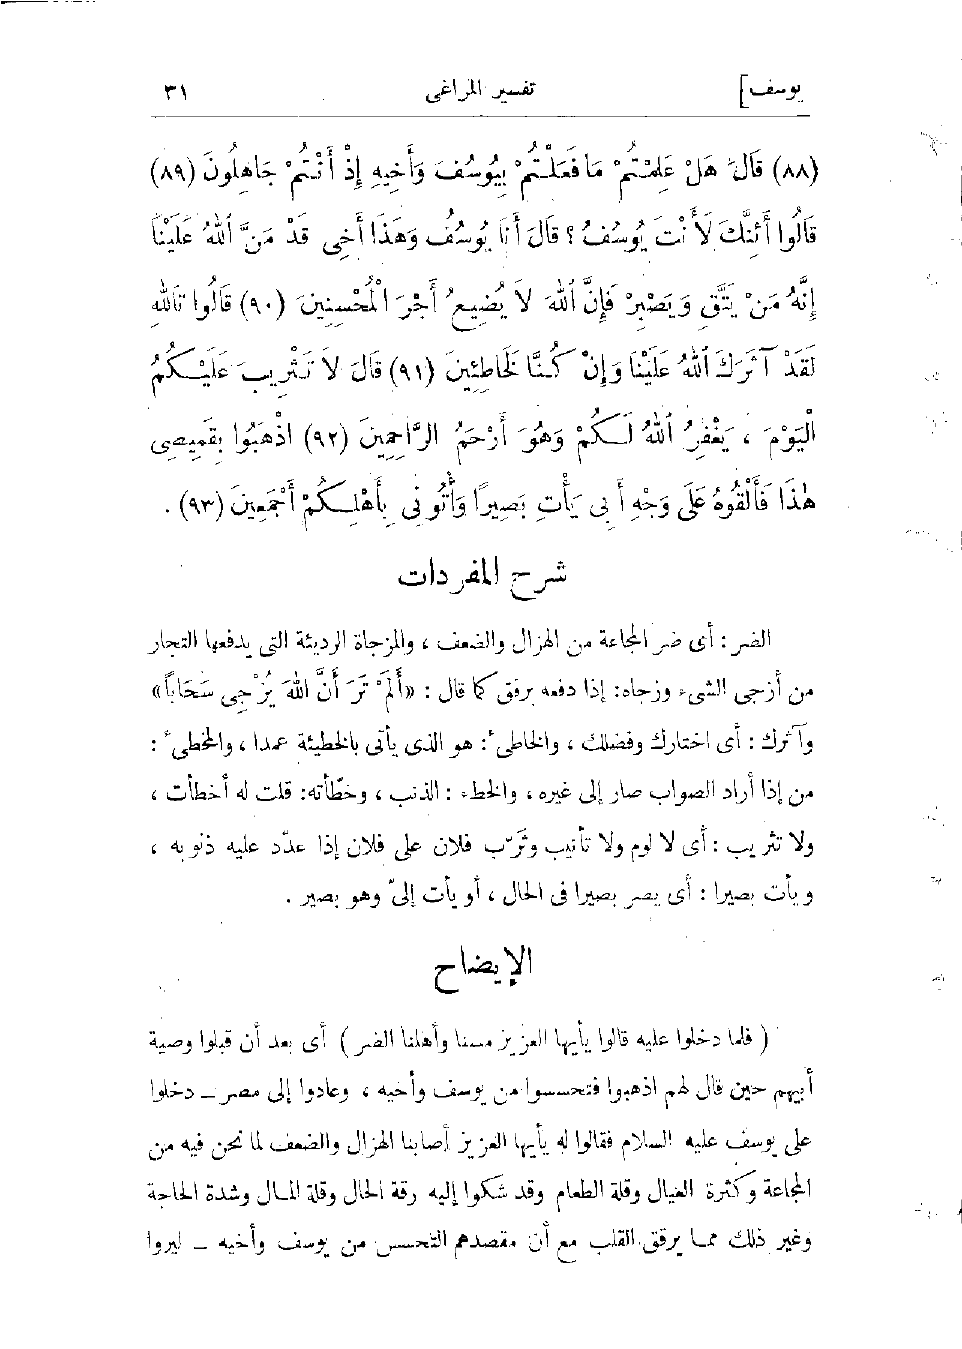 يوسف] تفسير المراغى ٣١
(٨٨) قَالَ هَلْ عَلِمْتُمْ مَا فَعَلْتُمْ بِيُوسُفَ وَأَخِيهِ إِذْ أَنْتُمْ جَاهِلُونَ (٨٩)
قَالُوا أَئِنَّكَ لَأَنْتَ يُوسُفُ؟ قَالَ أَنَا يُوسُفُ وَهَذَا أَخِى قَدْ مَنَّ اللهُ عَلَيْنَا
إِنَّهُ مَنْ يَتَّقِ وَيَصْبِرْ فَإِنَّ اللهَ لَا يُضِيعُ أَجْرَ الْمُحْسِنِينَ (٩٠) قَالُوا تَاللهِ
لَقَدْ آثَرَكَ اللهُ عَلَيْنَا وَإِنْ كُنَّا لَخَاطِئِينَ (٩١) قَالَ لَا تَثْرِيبَ عَلَيْكُمُ
الْيَوْمَ ، يَغْفِرُ اللهُ لَكُمْ وَهُوَ أَرْحَمُ الرَّاحِمِينَ (٩٢) اذْهَبُوا بِقَمِيصِى
هٰذَا فَأَلْقُوهُ عَلَى وَجْهِ أَبِى يَأْتِ بَصِيرًا وَأْتُونِى بِأَهْلِكُمْ أَجْمَعِينَ (٩٣) .
شرح المفردات
الضر : أى ضر المجاعة من الهزال والضعف ، والمزجاة الرديئة التى يدفعها التجار
من أزجى الشىء وزجاه: إذا دفعه برفق كما قال : «أَلَمْ تَرَ أَنَّ اللهَ يُزْجِى سَحَابًا»
وآثرك : أى اختارك وفضلك ، والخاطىء: هو الذى يأتى بالخطيئة عمدا ، والمخطىء :
من إذا أراد الصواب صار إلى غيره ، والخطء : الذنب ، وخطّأته: قلت له أخطأت ،
ولا تثريب : أى لا لوم ولا تأنيب وثَرّب فلان على فلان إذا عدّد عليه ذنوبه ،
ويأت بصيرا : أى يصر بصيرا فى الحال ، أو يأت إلىّ وهو بصير .
الإيضاح
( فلما دخلوا عليه قالوا يأيها العزيز مسنا وأهلنا الضر ) أى بعد أن قبلوا وصية
أبيهم حين قال لهم اذهبوا فتحسسوا من يوسف وأخيه ، وعادوا إلى مصر ــ دخلوا
على يوسف عليه السلام فقالوا له يأيها العزيز أصابنا الهزال والضعف لما نحن فيه من
المجاعة وكثرة العيال وقلة الطعام وقد شكوا إليه رقة الحال وقلة المال وشدة الحاجة
وغير ذلك مما يرقق القلب مع أن مقصدهم التحسس من يوسف وأخيه ــ ليروا